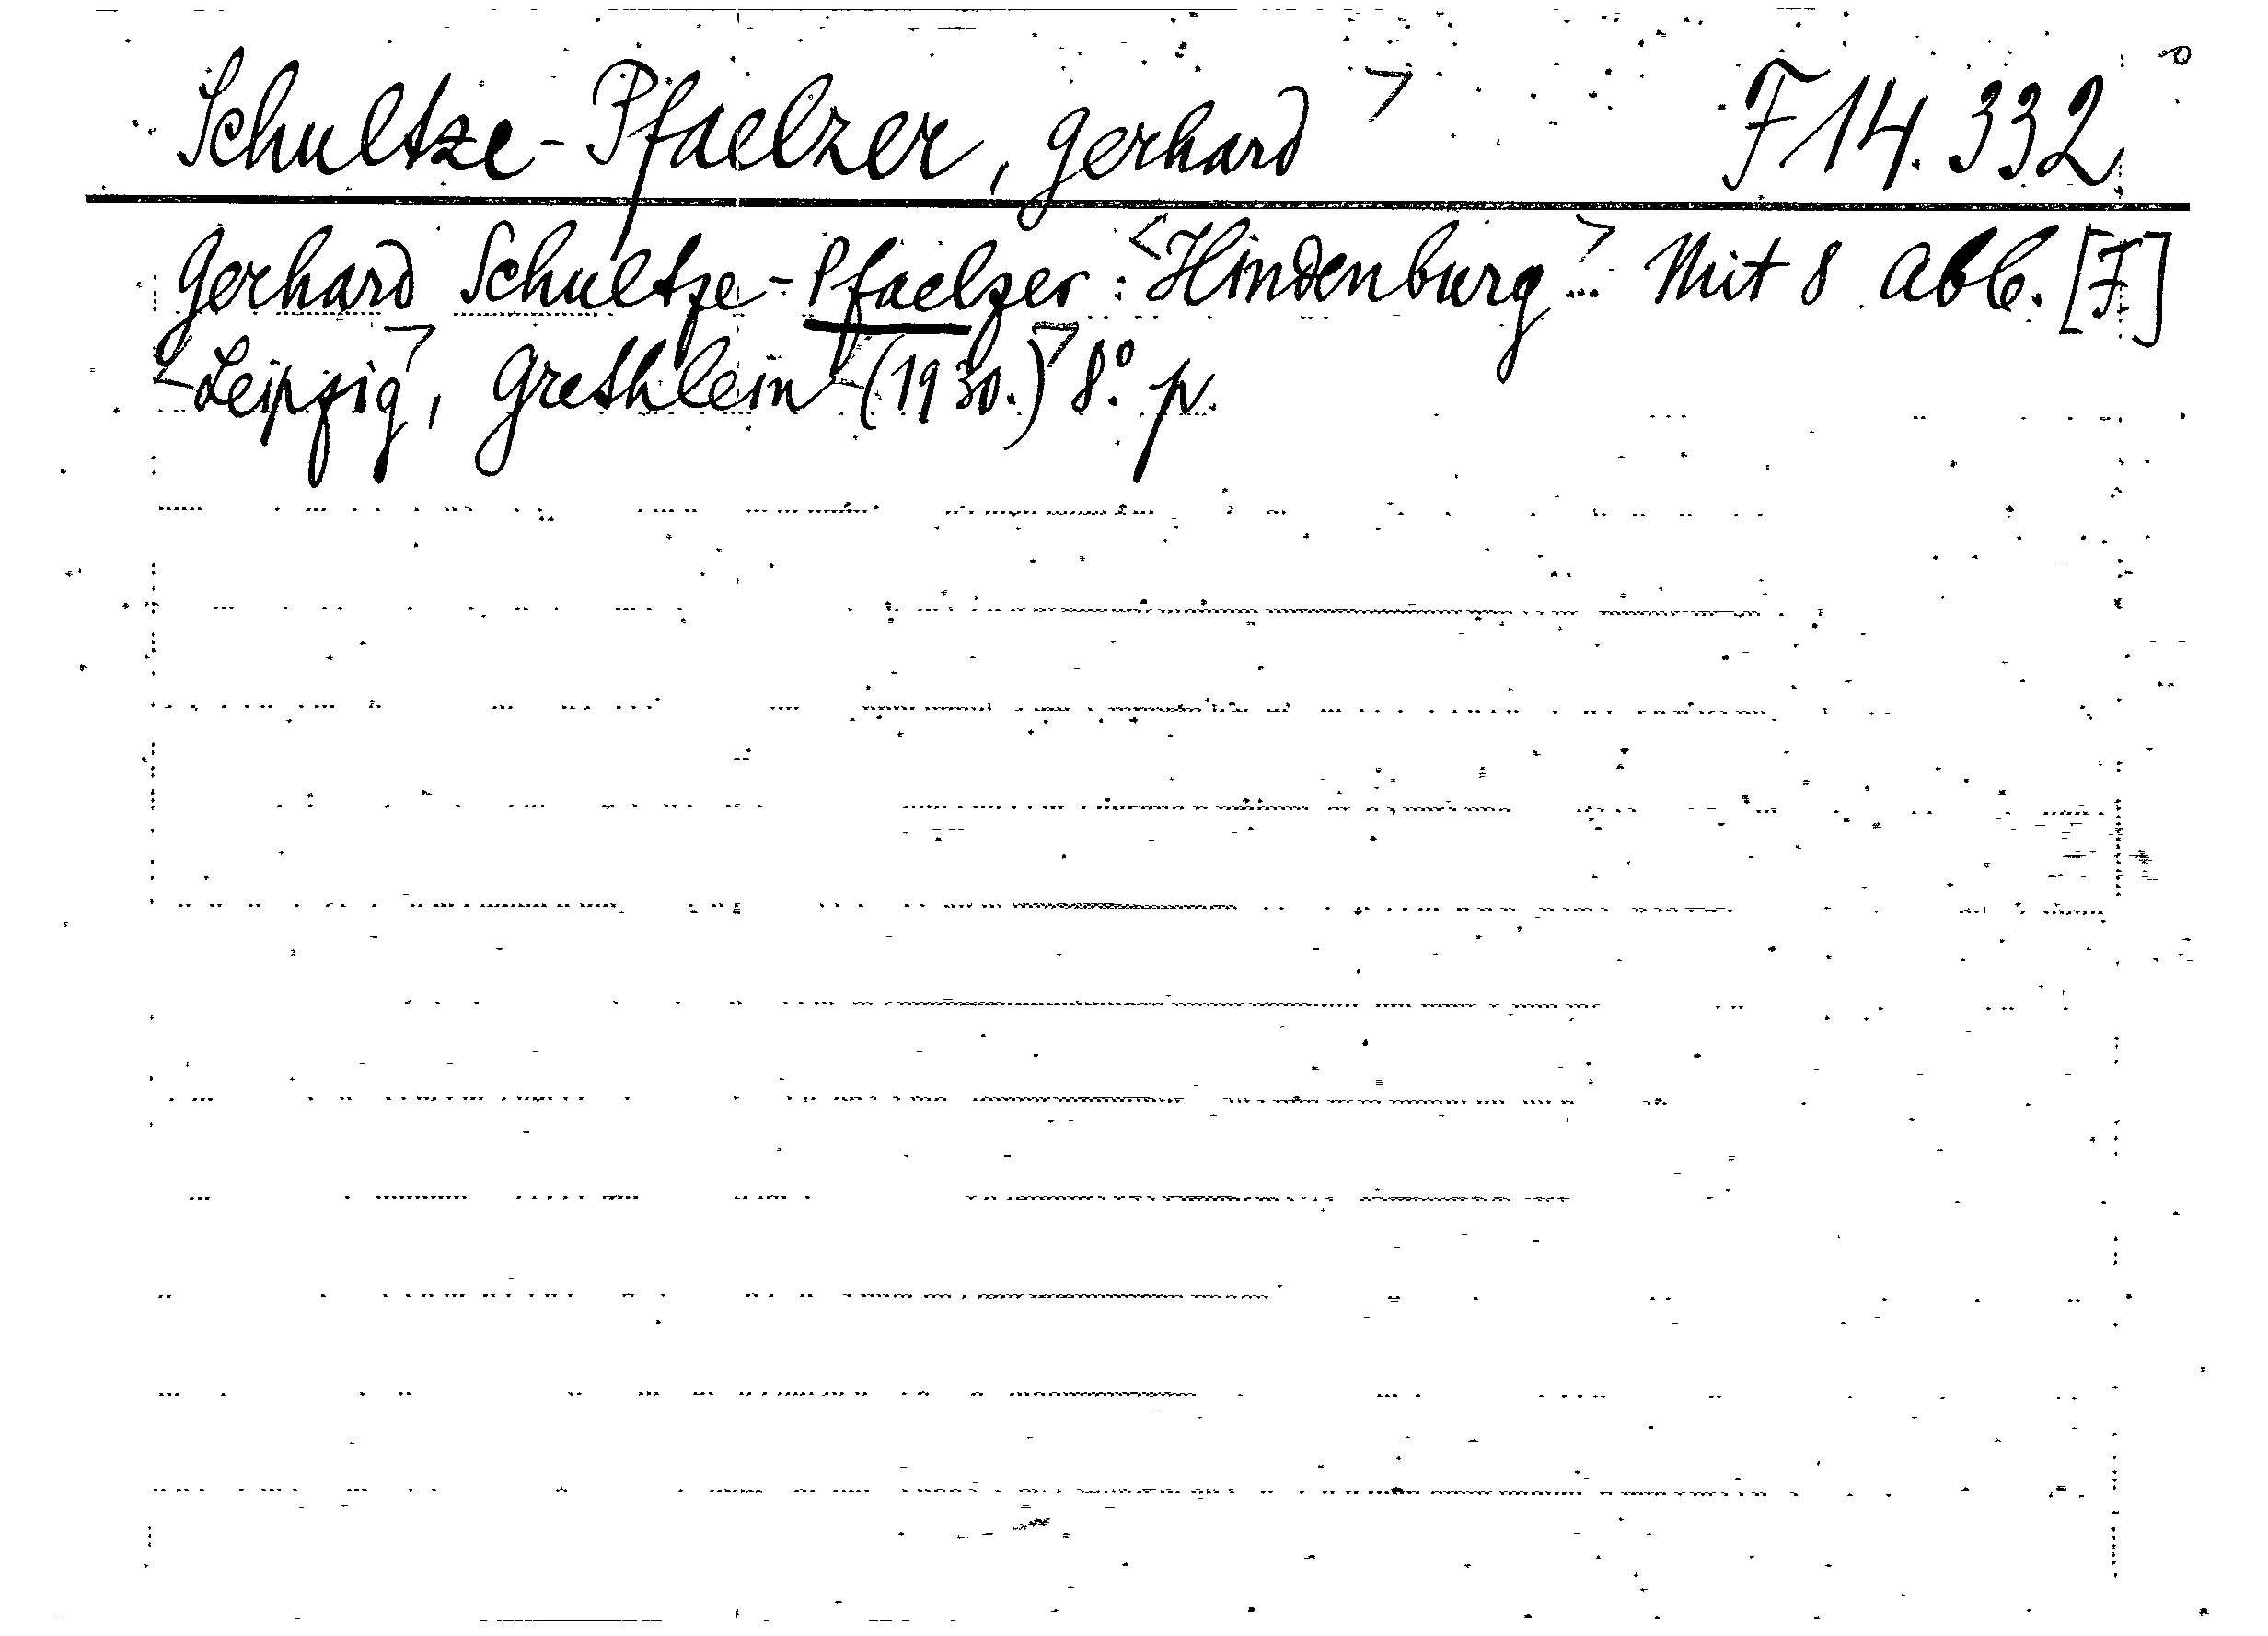 Schultze-Pfaelzer, Gerhard> F 14.332
Gerhard Schultze-Pfaelzer: <Hindenburg>... Mit 8 Abb. [F]
<Leipzig>, Grethlein (1930.)> 8° p.